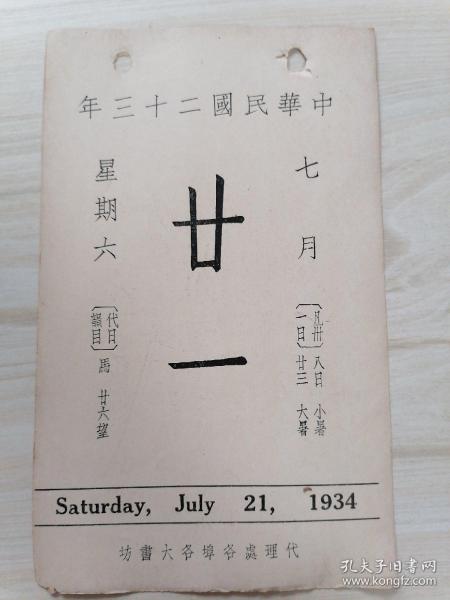 中華民國二十三年
七月
〔凡卅一日〕
八日 小暑
廿三 大暑
廿一
星期六
〔代日韻目〕
馬 廿六望
Saturday, July 21, 1934
代理處各埠各大書坊
孔夫子旧书网
kongfz.com